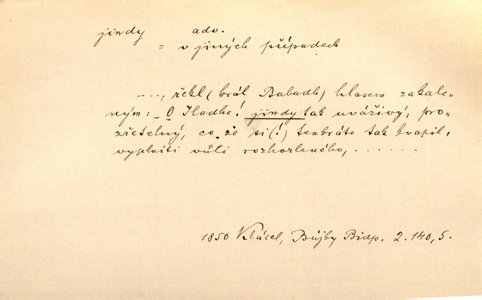 jindy adv.
= v jiných případech
..., řekl (král Babadh) hlasem zakale-
ným: „O Iladhe! jindy tak uvážlivý, pro-
zřetelný, co že si(!) tenkráte tak kvapil,
vyplniti vůli rozhorleného, ......
1850 Klácel, Bájky Bidp. 2. 140, 5.